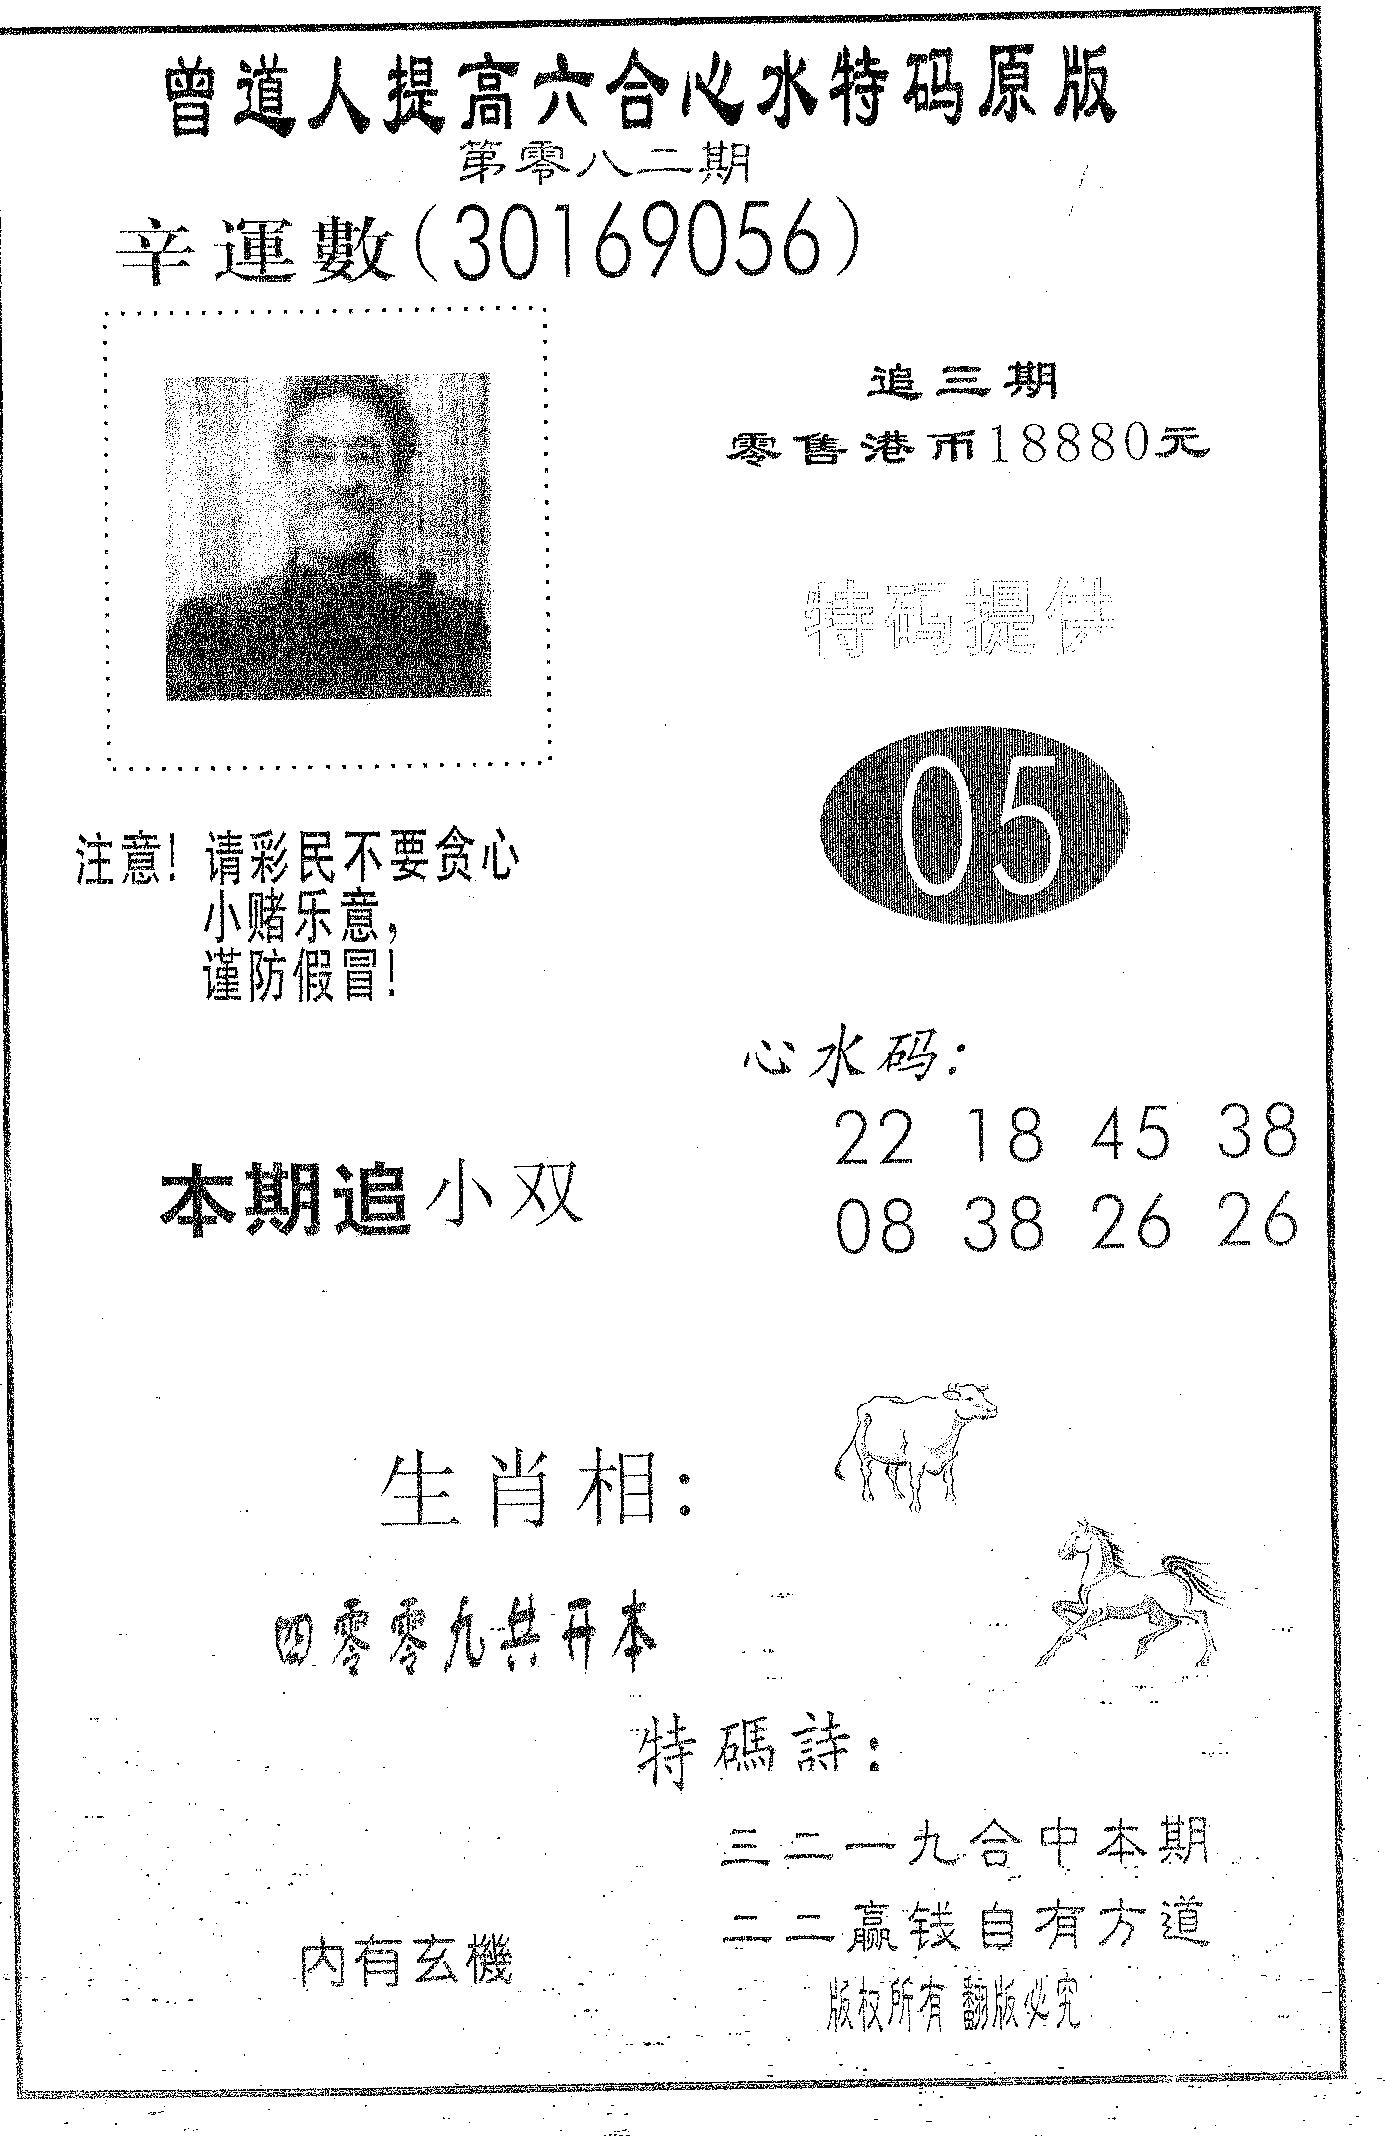 曾道人提高六合心水特码原版
第零八二期
辛運數(30169056)
追三期
零售港币18880元
特码提供
05
注意！请彩民不要贪心
小赌乐意，
谨防假冒！
心水码：
22 18 45 38
08 38 26 26
本期追小双
生肖相：
四零零九共开本
特碼詩：
三二一九合中本期
二二赢钱自有方道
内有玄機
版权所有 翻版必究